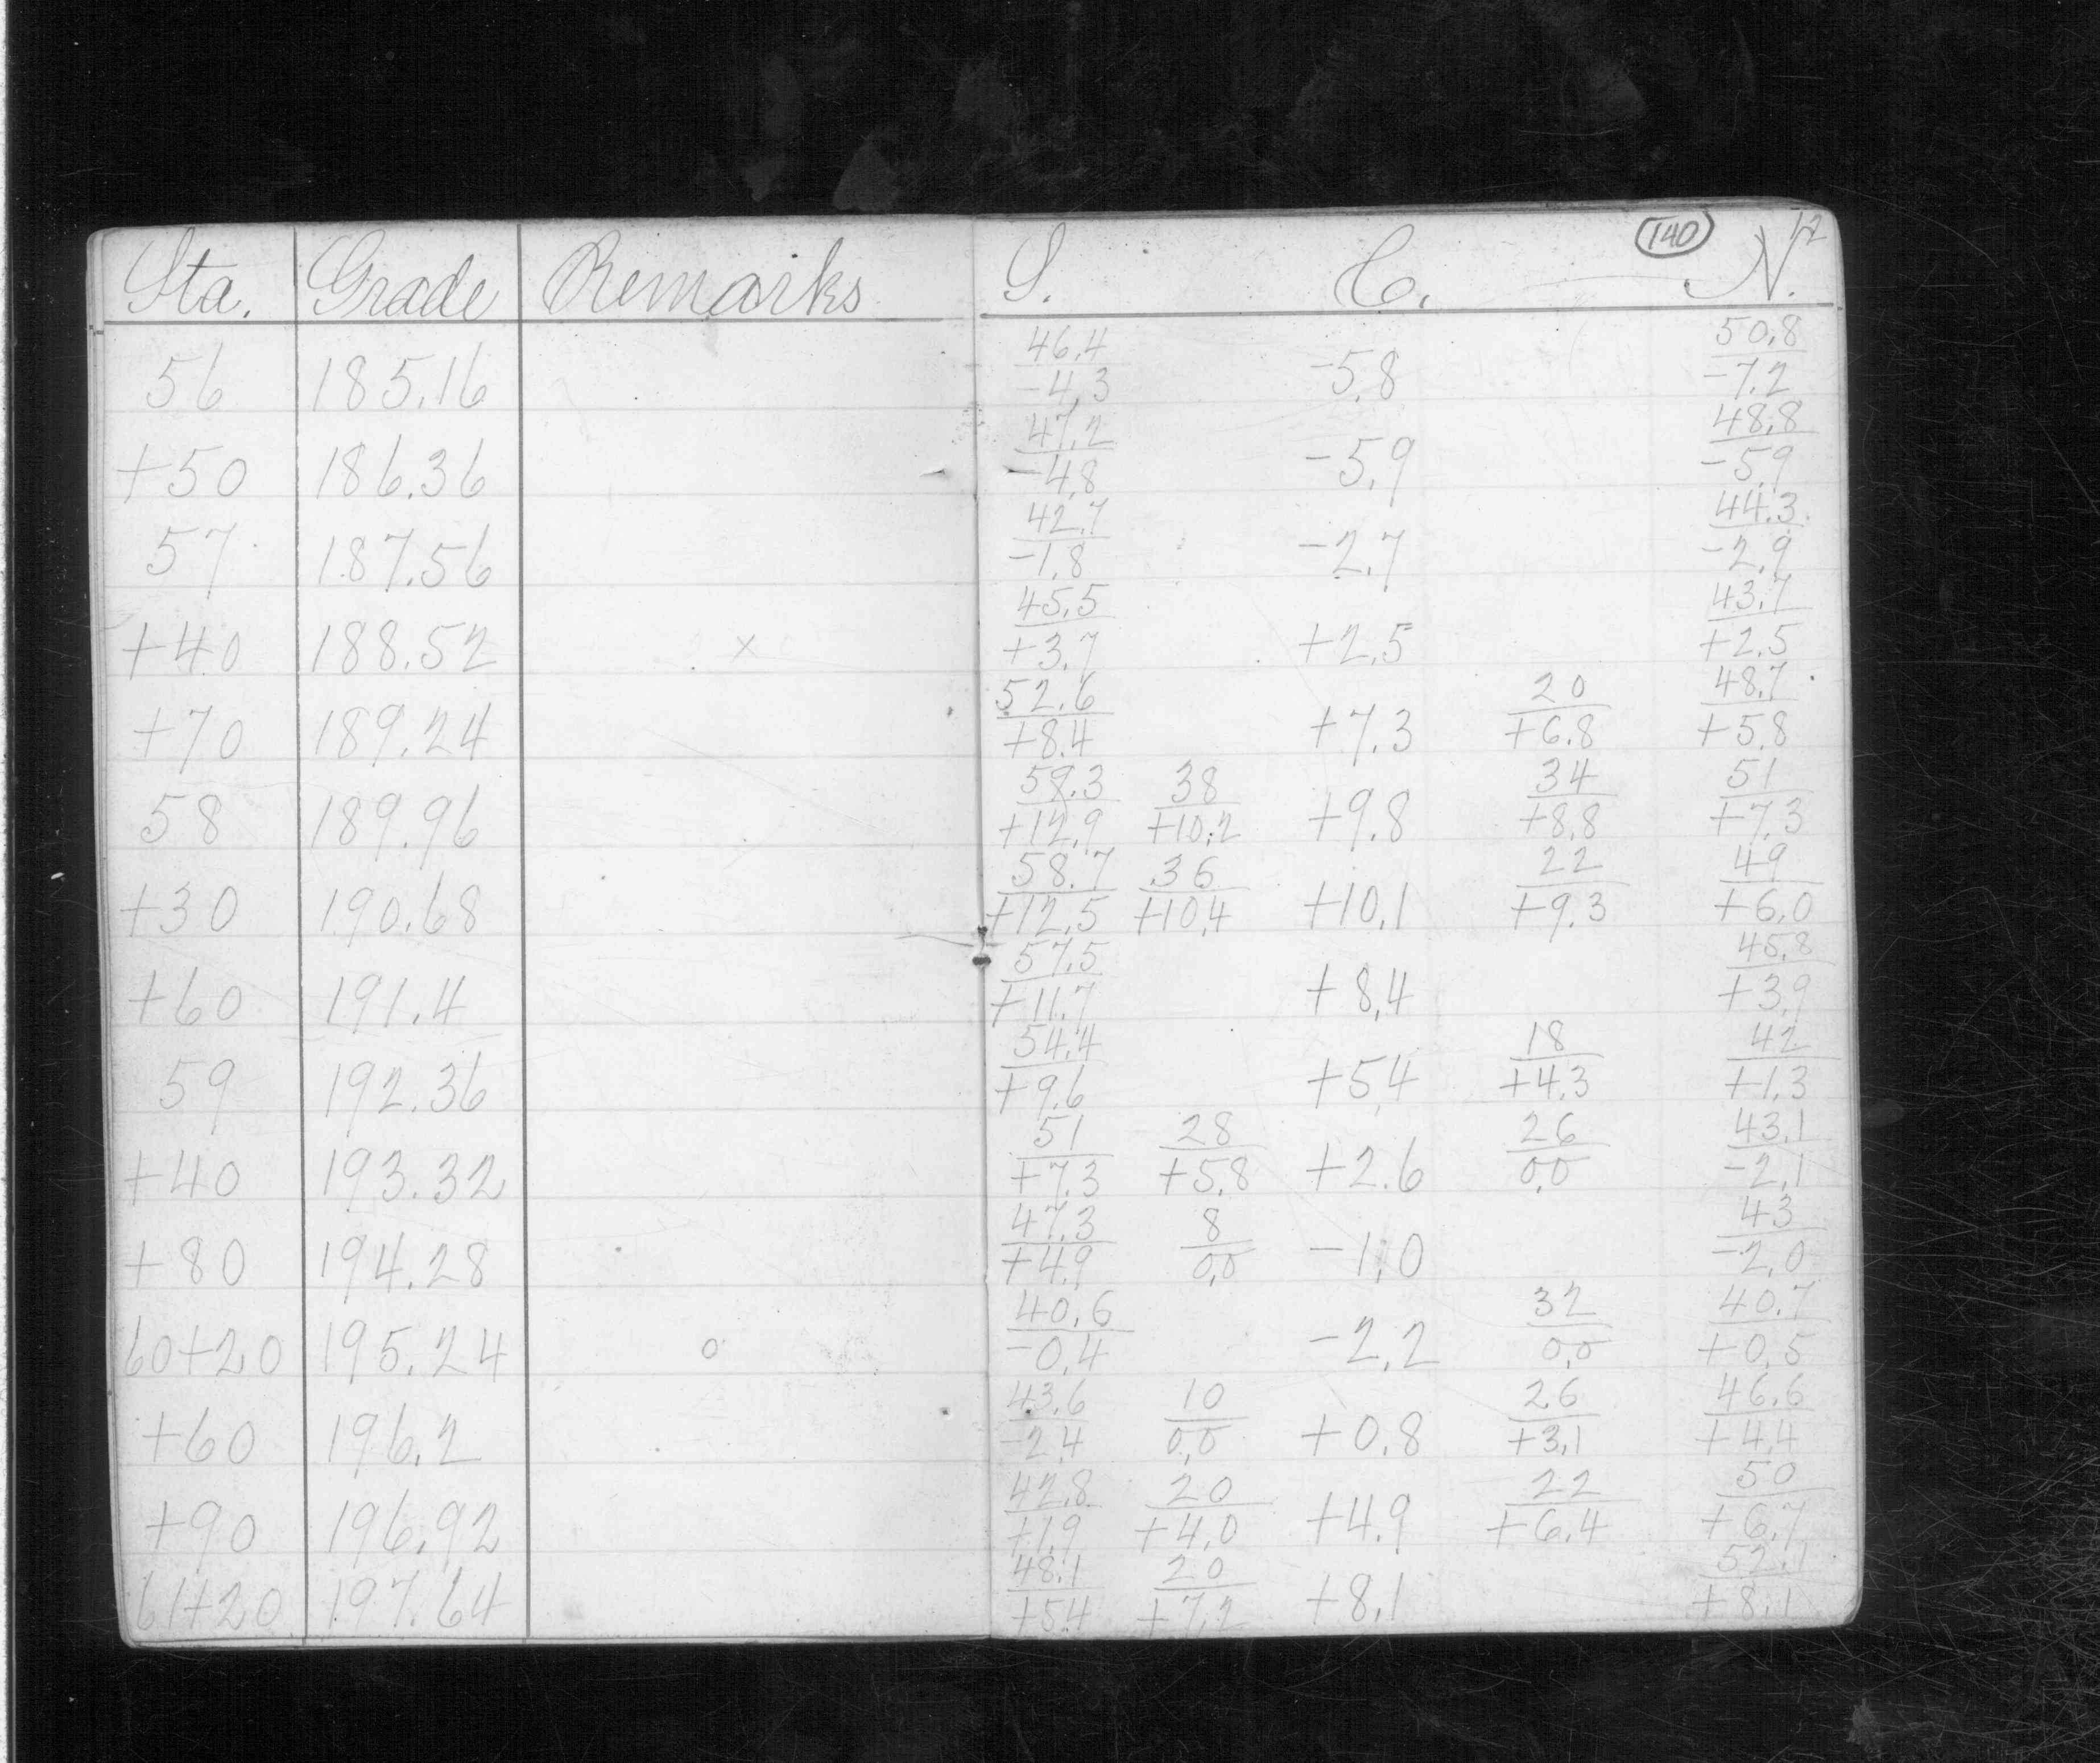 140 12
Sta. Grade Remarks S. C. N.
46.4 50.8
56 185.16 -4.3 -5.8 -7.2
47.2 48.8
+50 186.36 -4.8 -5.9 -5.9
42.7 44.3
57 187.56 -1.8 -2.7 -2.9
45.5 43.7
+40 188.52 x +3.7 +2.5 +2.5
52.6 20 48.7
+70 189.24 +8.4 +7.3 +6.8 +5.8
59.3 38 34 51
58 189.96 +12.9 +10.2 +9.8 +8.8 +7.3
58.7 36 22 49
+30 190.68 +12.5 +10.4 +10.1 +9.3 +6.0
57.5 45.8
+60 191.4 +11.7 +8.4 +3.9
54.4 18 42
59 192.36 +9.6 +5.4 +4.3 +1.3
51 28 26 43.1
+40 193.32 +7.3 +5.8 +2.6 0.0 -2.1
47.3 8 43
+80 194.28 +4.9 0.0 -1.0 -2.0
40.6 32 40.7
60+20 195.24 o -0.4 -2.2 0.0 +0.5
43.6 10 26 46.6
+60 196.2 -2.4 0.0 +0.8 +3.1 +4.4
42.8 20 22 50
+90 196.92 +1.9 +4.0 +4.9 +6.4 +6.7
48.1 20 52.1
61+20 197.64 +5.4 +7.2 +8.1 +8.1